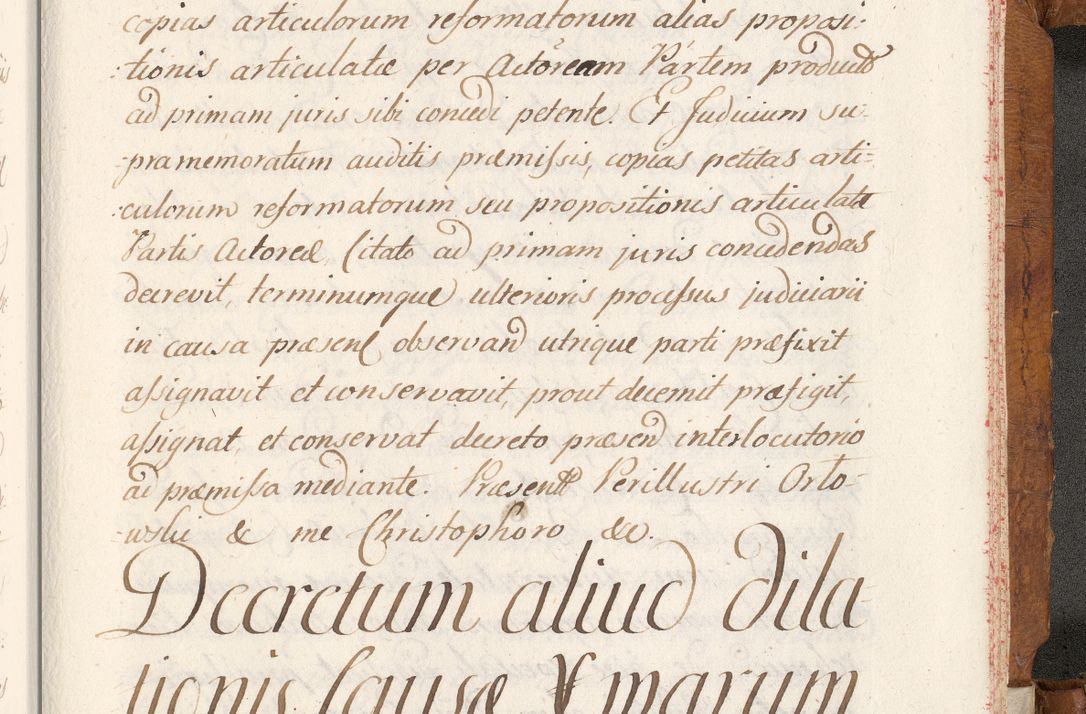 copias articulorum reformatorum alias proposi-
-tionis articulatæ per Actoream Partem product
ad primam juris sibi concedi petente. Et Judicium su-
-pramemoratum auditis præmissis, copias petitas arti=
-culorum reformatorum seu propositionis articulatæ
Partis Actoreæ Citato ad primam juris concedendas
decrevit, terminumque ulterioris processus judiciarii
in causa præsen observand utrique parti præfixit
assignavit et conservavit, prout decernit præfigit,
assignat, et conservat decreto præsen interlocutorio
ad præmissa mediante. Præsent Perillustri Orło-
-wski & me Christophoro &c.
Decretum aliud Dila-
tionis Causæ